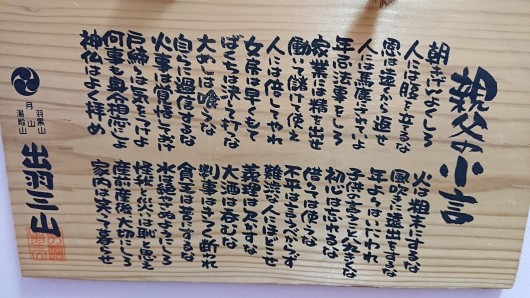 親父の小言
朝きげんよくしろ
人には腹を立るな
恩は遠くから返せ
人には馬鹿にされていろ
年忌法事をしろ
家業には精を出せ
働いて儲けて使え
人には倍してやれ
女房は早くもて
ばくちは決して打な
大めしは喰うな
自らに過信するな
火事は覚悟しておけ
戸締りに気をつけよ
何事も身分相応にしろ
神仏はよく拝め
火は粗末にするな
風吹きに遠出をするな
年よりはいたわれ
子供の云うこと八九きくな
初心は忘れるな
借りては使うな
不平は云うべからず
難渋な人にほどこせ
義理は欠かすな
大酒は呑むな
判事はきつく断れ
貧乏は苦にするな
水は絶さぬようにしろ
怪我と災は恥と思え
産前産後を大切にしろ
家内は笑ふて暮せ
羽黒山
月山
湯殿山
出羽三山